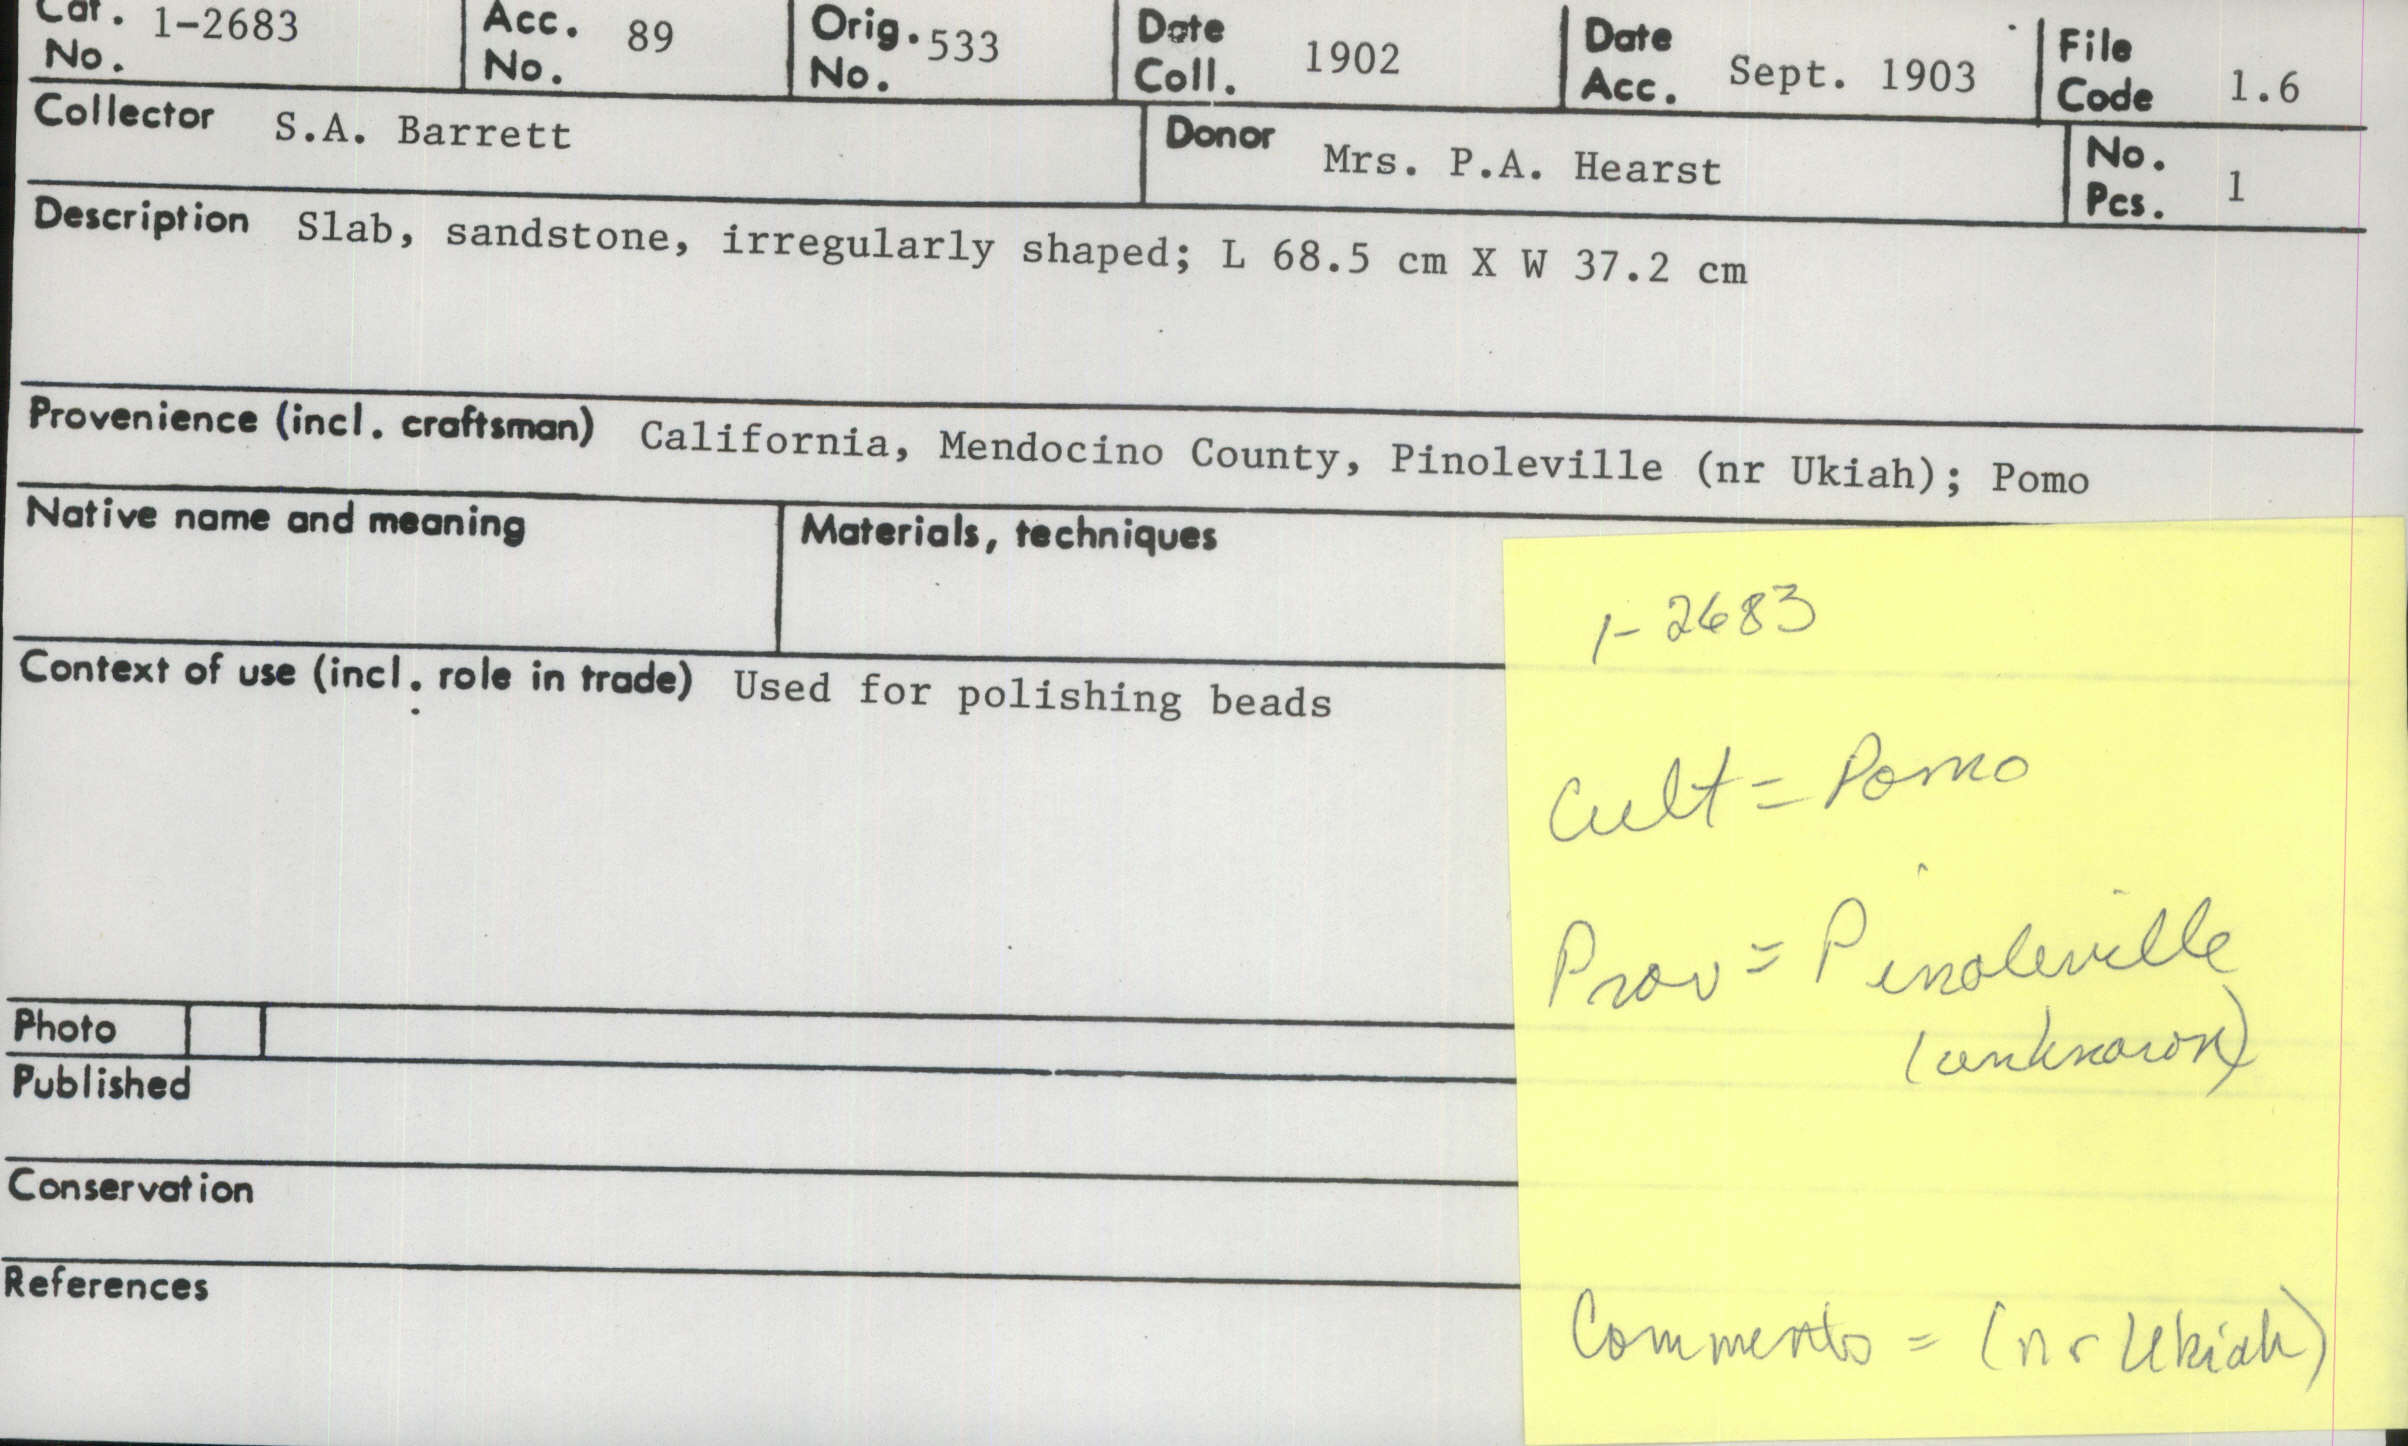 Cat. No. 1-2683 Acc. No. 89 Orig. No. 533 Date Coll. 1902 Date Acc. Sept. 1903 File Code 1.6
Collector S.A. Barrett Donor Mrs. P.A. Hearst No. Pcs. 1
Description Slab, sandstone, irregularly shaped; L 68.5 cm X W 37.2 cm
Provenience (incl. craftsman) California, Mendocino County, Pinoleville (nr Ukiah); Pomo
Native name and meaning Materials, techniques
Context of use (incl. role in trade) Used for polishing beads
Photo
Published
Conservation
References
1-2683
Cult = Pomo
Prov = Pinoleville
(unknown)
Comments = (nr Ukiah)